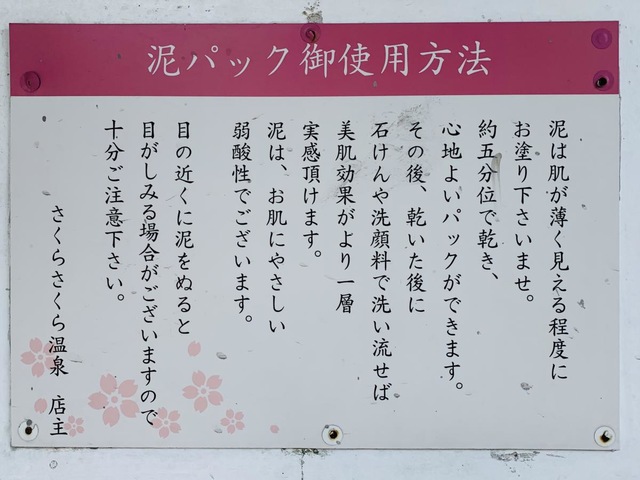 泥パック御使用方法
泥は肌が薄く見える程度に
お塗り下さいませ。
約五分位で乾き、
心地よいパックができます。
その後、乾いた後に
石けんや洗顔料で洗い流せば
美肌効果がより一層
実感頂けます。
泥は、お肌にやさしい
弱酸性でございます。
目の近くに泥をぬると
目がしみる場合がございますので
十分ご注意下さい。
さくらさくら温泉 店主